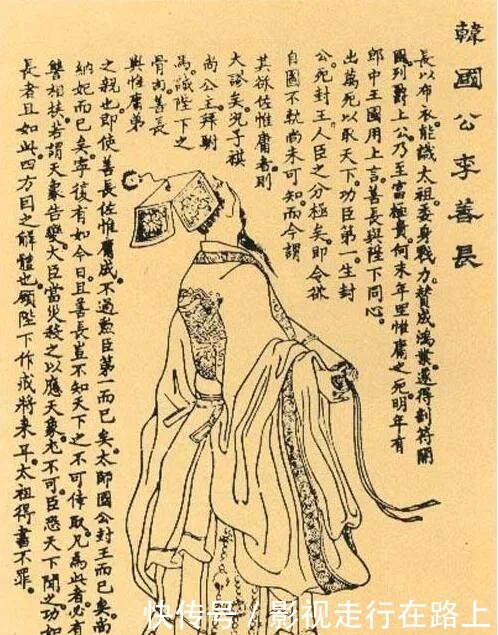 韓國公李善長
長以布衣能識太祖委身戮力。贊成鴻業。遂得剖符開
國列爵上公乃至富極貴。何末年坐惟庸之死。明年有
郎中王國用上言。善長與陛下同心。
出萬死以取天下。功臣第一。生封
公。死封王人臣之分極矣。即令欲
自圖不軌尚未可知。而今謂
其欲佐惟庸者。則
大謬矣。況子祺
尚公主。拜駙
馬。誠陛下之
骨肉。善長
與惟庸第
之親也。即使善長佐惟庸成。不過勳臣第一而已矣。太師國公封王而已矣。尚
納妃而已矣。寧復有如今日。且善長豈不知天下之不可倖取。兄為此者。必有
讐相扶。若謂天象告變。大臣當災。殺之以應天象。尤不可。臣恐天下聞之。功如
長者且如此。四方因之解體也。願陛下作戒將來耳。太祖得書不罪。
快传号 / 影视走行在路上